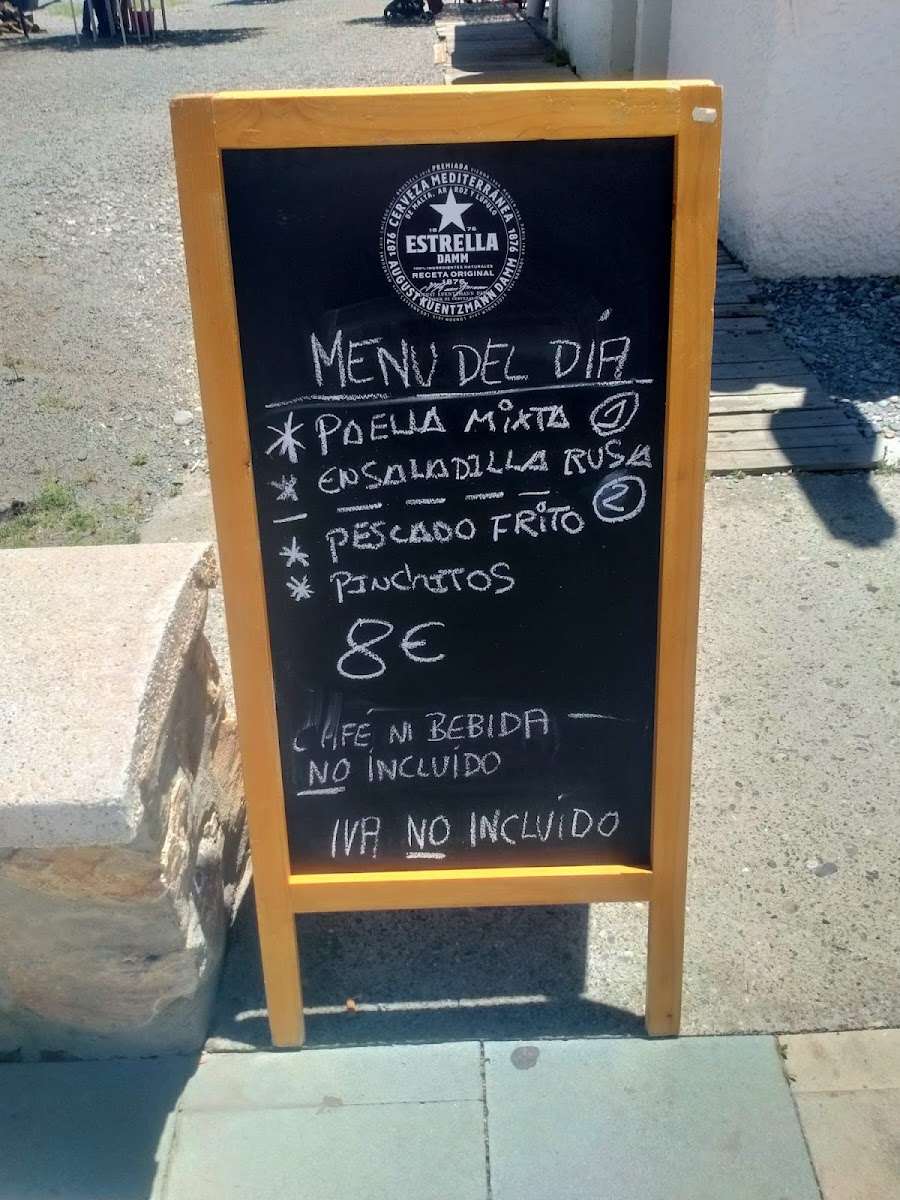 PREMIADA
CERVEZA MEDITERRÁNEA
DE MALTA, ARROZ Y LÚPULO
1876
1876
ESTRELLA
DAMM
100% INGREDIENTES NATURALES
RECETA ORIGINAL
1876
AUGUST KUENTZMANN DAMM
MENU DEL DÍA
* PAELLA MIXTA 1
* ENSALADILLA RUSA
— — — — —
* PESCADO FRITO 2
* PINCHITOS
8€
CAFÉ NI BEBIDA —
NO INCLUÍDO
IVA NO INCLUÍDO